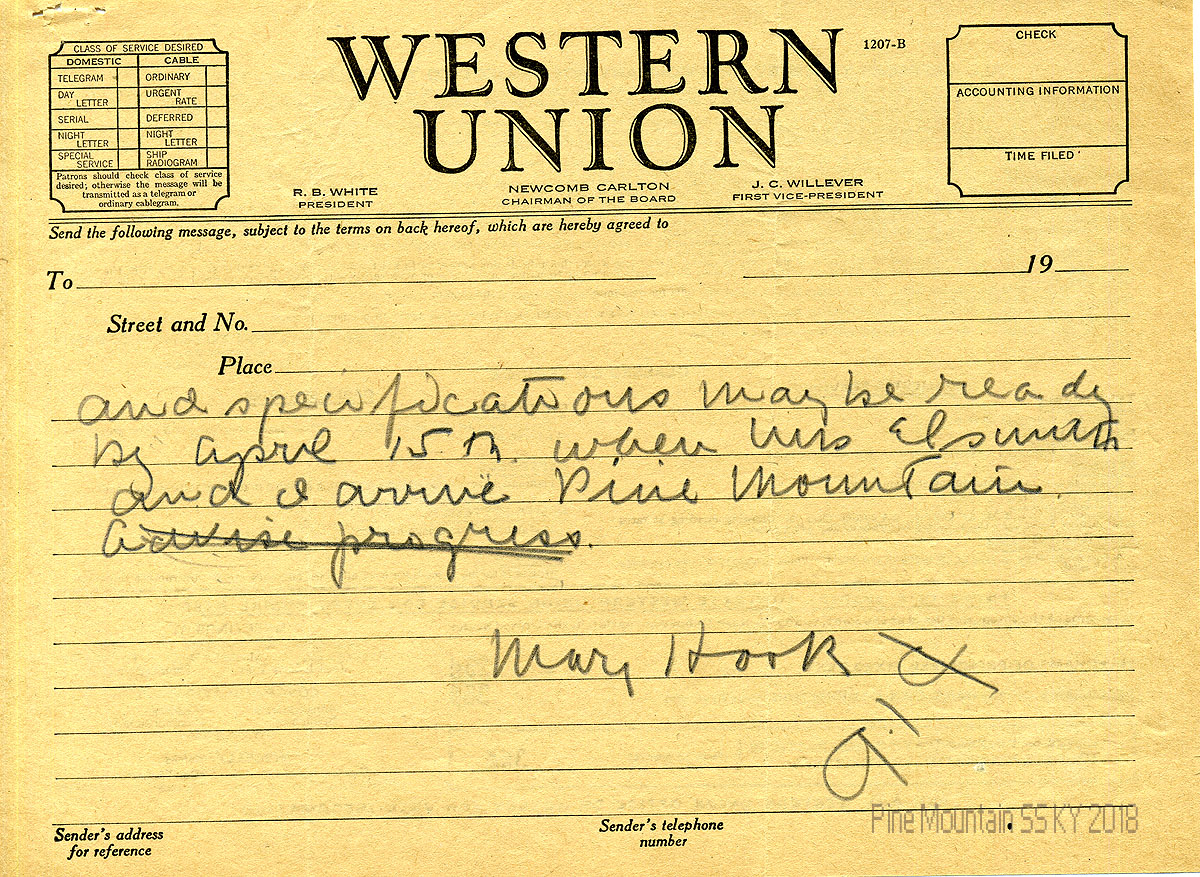 CLASS OF SERVICE DESIRED
DOMESTIC CABLE
TELEGRAM ORDINARY
DAY LETTER URGENT RATE
SERIAL DEFERRED
NIGHT LETTER NIGHT LETTER
SPECIAL SERVICE SHIP RADIOGRAM
Patrons should check class of service
desired; otherwise the message will be
transmitted as a telegram or
ordinary cablegram.
WESTERN
UNION
1207-B
R. B. WHITE
PRESIDENT
NEWCOMB CARLTON
CHAIRMAN OF THE BOARD
J. C. WILLEVER
FIRST VICE-PRESIDENT
CHECK
ACCOUNTING INFORMATION
TIME FILED
Send the following message, subject to the terms on back hereof, which are hereby agreed to
To 19
Street and No.
Place
and specifications may be ready
by April 15th. when Mrs Elsmith
and I arrive Pine Mountain.
Advise progress.
Mary Hook
Sender's address
for reference
Sender's telephone
number
Pine Mountain SS KY 2018